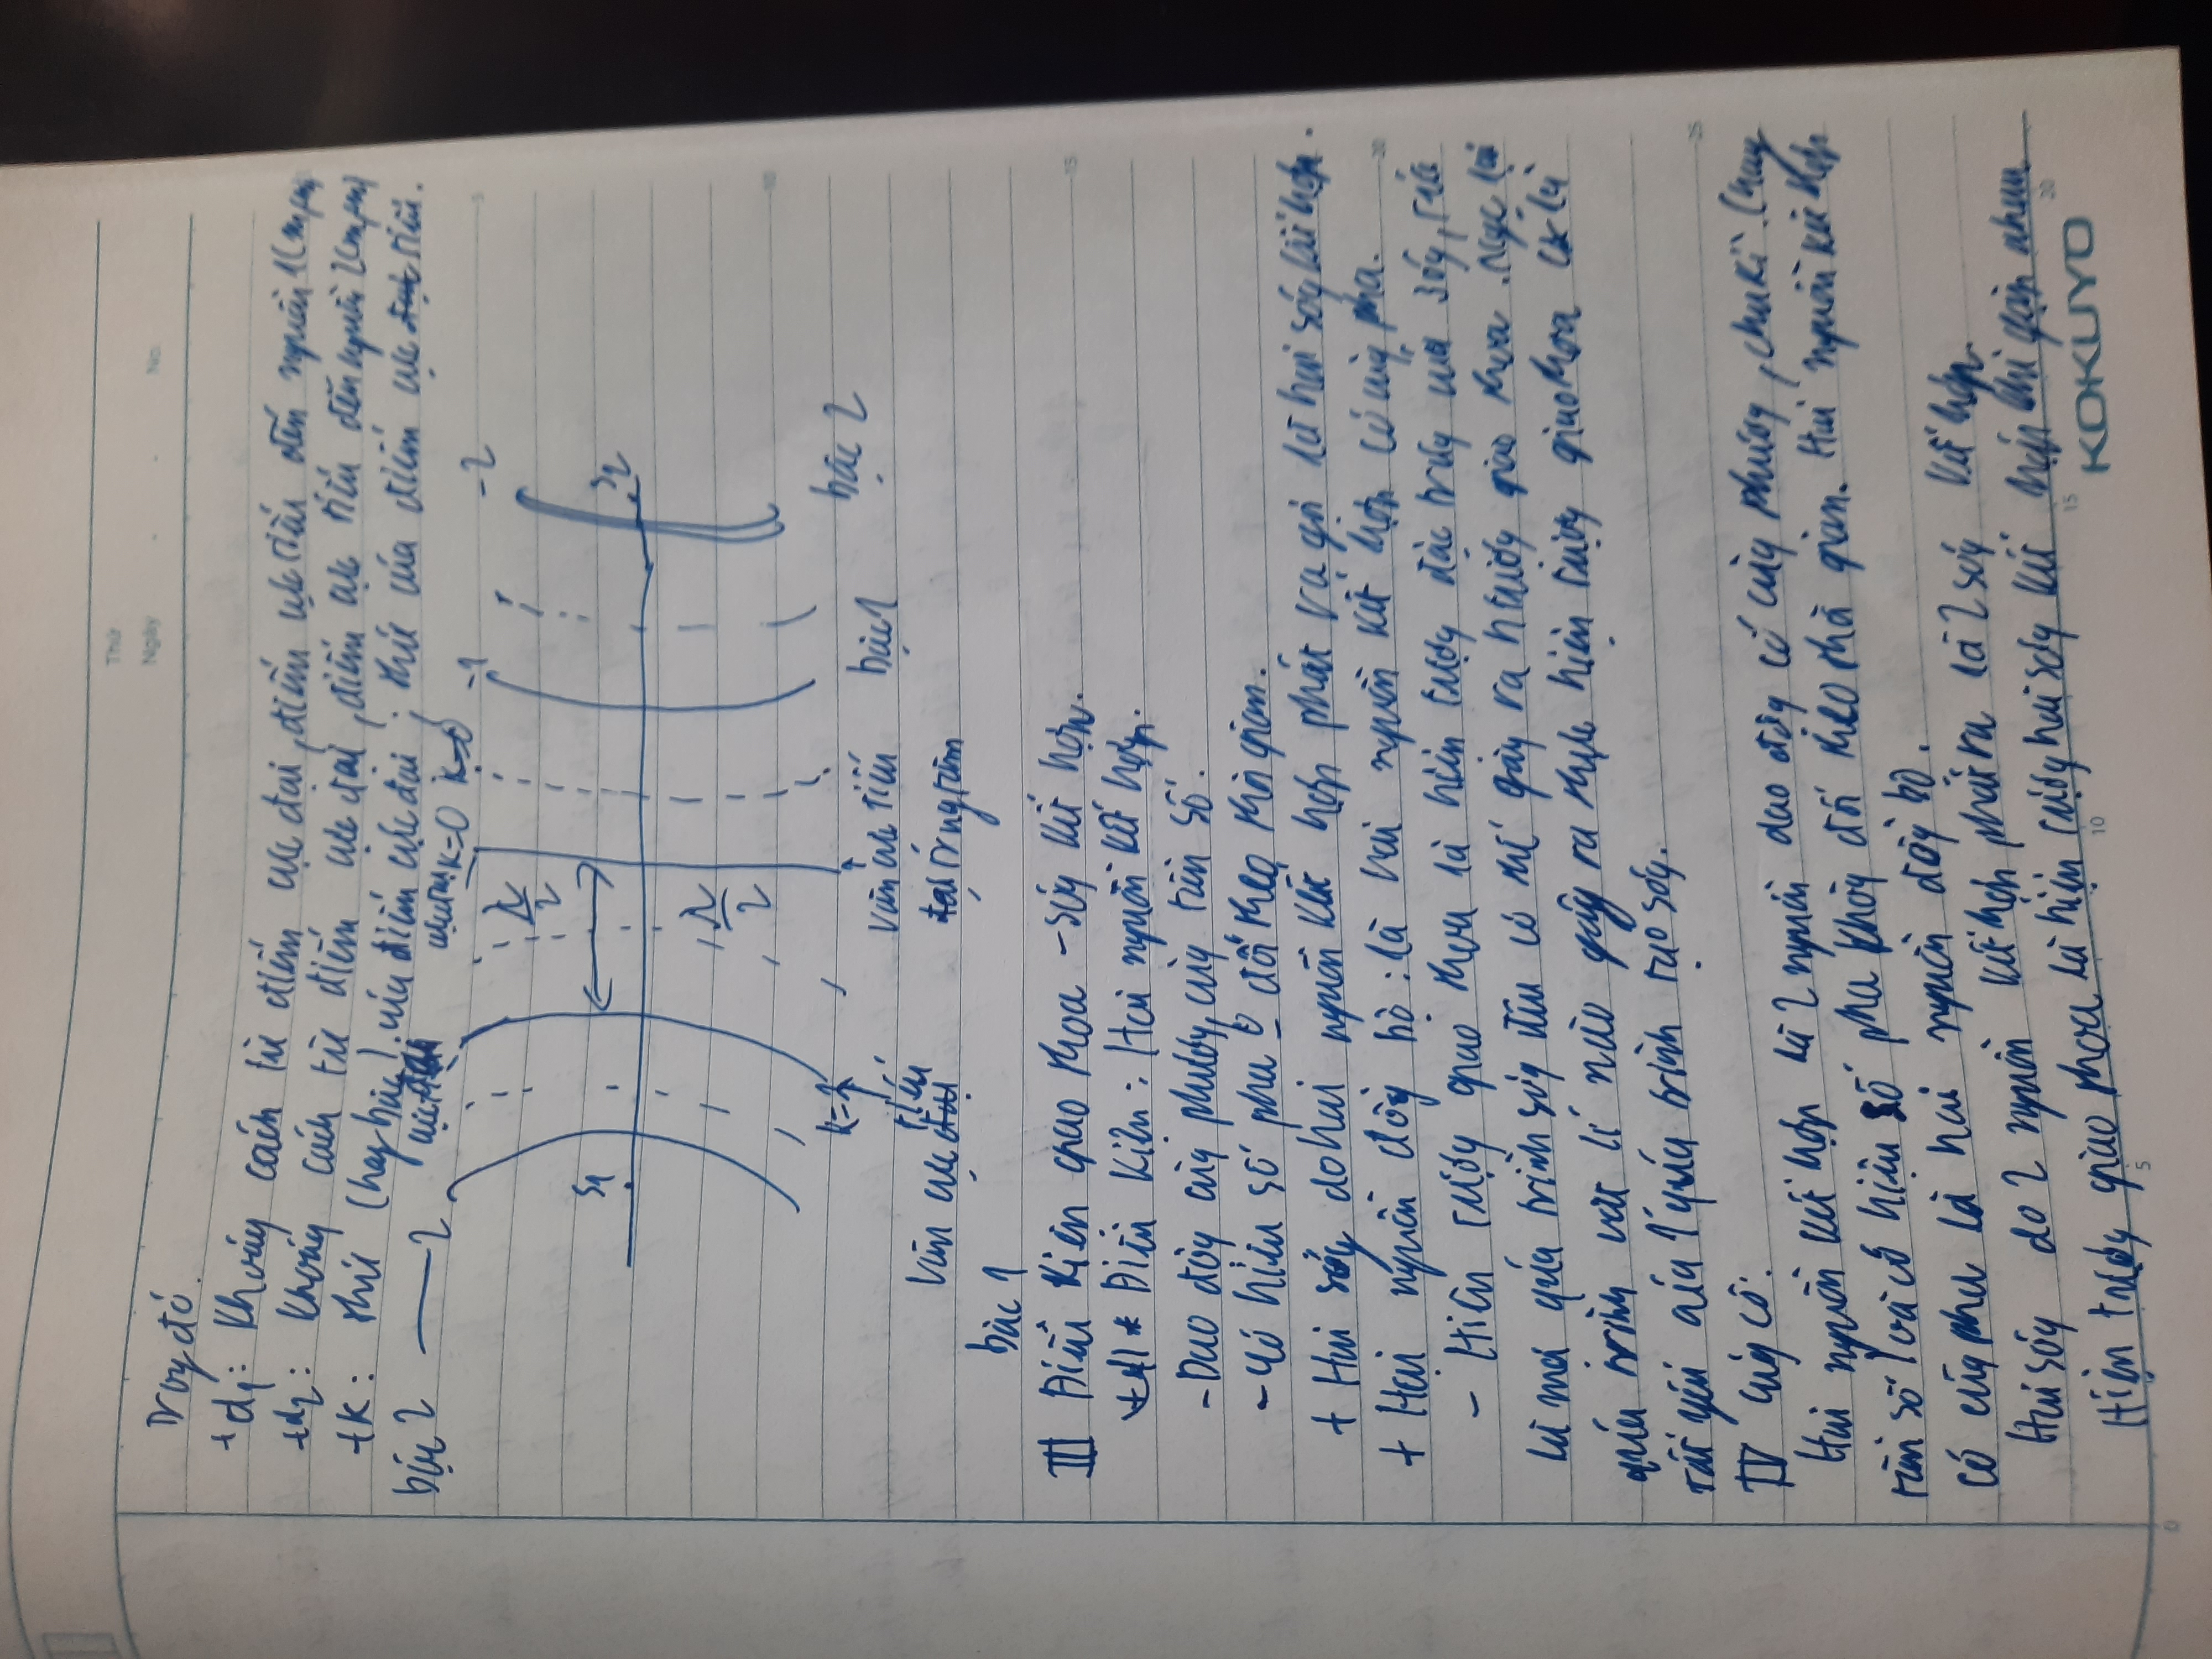 Thứ
Ngày . . No.
Trog đó.
+ d1: Khoảng cách từ điểm cực đại, điểm cực tiểu đến nguồn 1 (m,cm)
+ d2: Khoảng cách từ điểm cực đại, điểm cực tiểu đến nguồn 2 (m,cm)
+ k: thứ (hay bậc) của điểm cực đại; thứ của điểm cực đại tiểu.
bậc 2 2 k=0 k=0 -1 -2
λ/2
S1 S2
λ/2
k=1
bậc 2
vân cực tiểu bậc 1
tiểu
vân cực đại
đại trung tâm
bậc 1
III Điều kiện giao thoa - sóng kết hợp.
* Điều kiện: Hai nguồn kết hợp.
- Dao động cùng phương, cùng tần số.
- Có hiệu số pha đổi theo thời gian.
+ Hai sóng do hai nguồn kết hợp phát ra gọi là hai sóng kết hợp.
+ Hai nguồn đồng bộ: là hai nguồn kết hợp có cùng pha.
- Hiện tượng giao thoa là hiện tượng đặc trưng của sóng, tức
là mọi quá trình sóng đều có thể gây ra h tượng giao thoa. Ngược lại
quá trình vật lí nào gây ra được hiện tượng giao thoa là
tất yếu của 1 quá trình tạo sóng.
IV Củng cố:
Hai nguồn kết hợp là 2 nguồn dao động có cùng phương, chu kì (hay
tần số) và có hiệu số pha không đổi theo thời gian. Hai nguồn kết hợp
có cùng pha là hai nguồn đồng bộ.
Hai sóng do 2 nguồn kết hợp phát ra là 2 sóng kết hợp.
Hiện tượng giao thoa là hiện tượng hai sóng kết hợp khi gặp nhau
KOKUYO